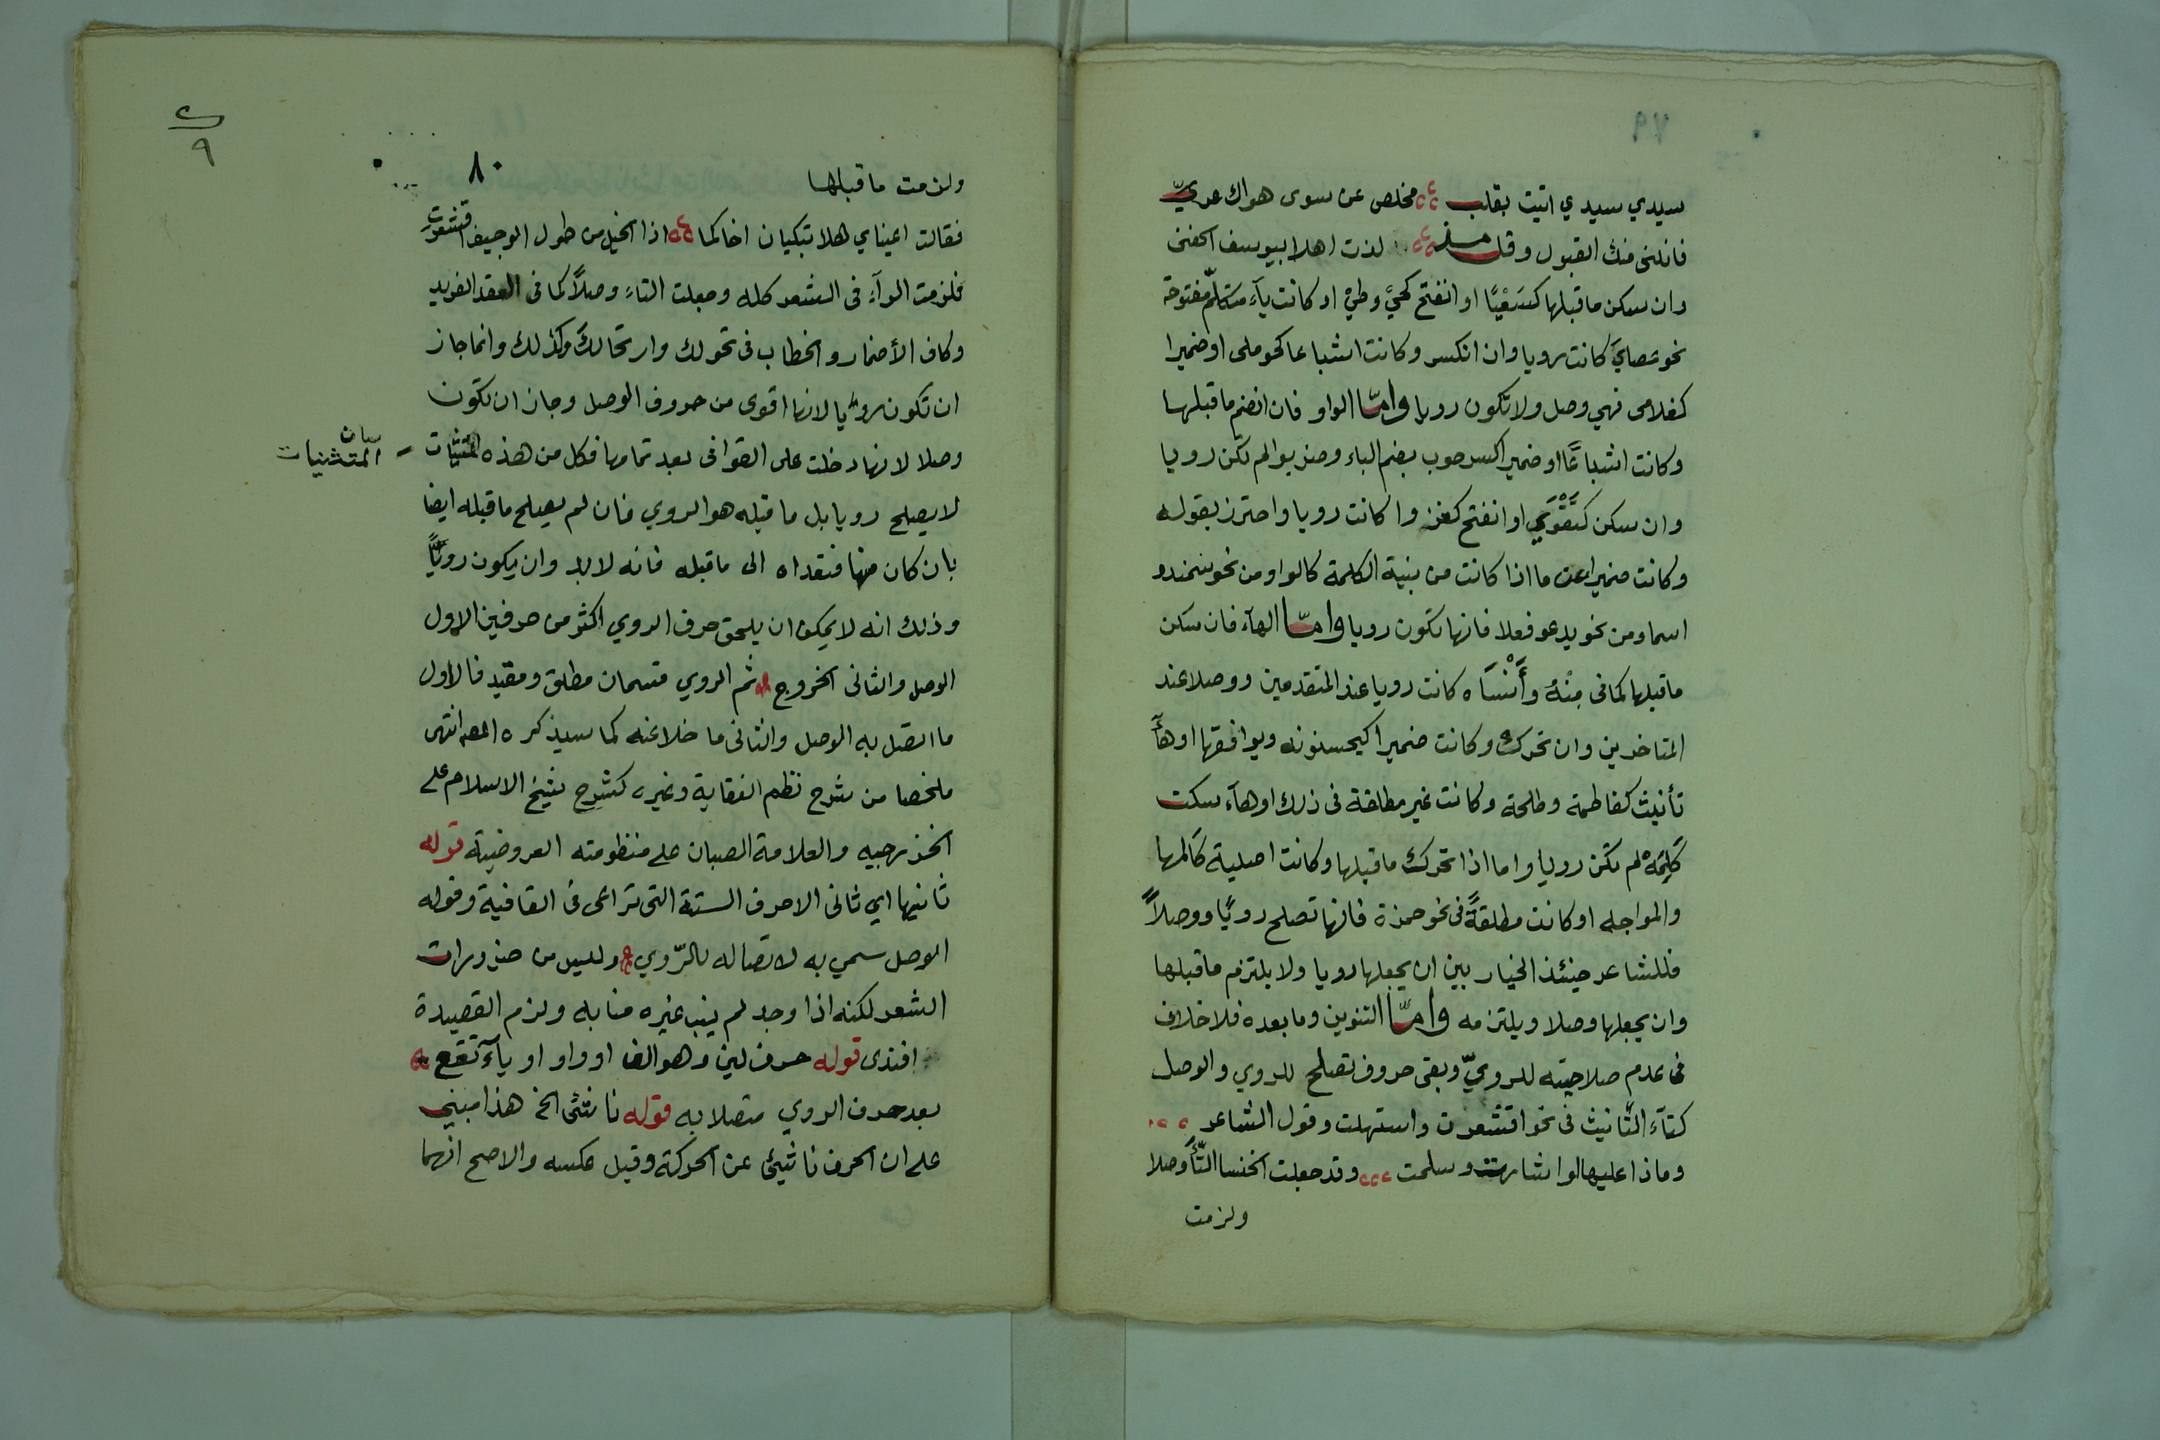 ٧٩
سيدي سيدي اتيت بقلب مخلص عن سوى هواك عريّ
فانلنى منك القبول وقل لذت اهلا بيوسف الحفنى
وان سكن ما قبلها كسَعْيًا او انفتح كحيَّ وطيْ او كانت يآء متكلّم مفتوحة
نحو عصايَ كانت رويا وان انكسر وكانت اشباعا كحوملى او ضميرا
كغلامى فهي وصل ولا تكون رويا وامّا الواو فان انضم ما قبلها
وكانت اشباعًا او ضميرا كسرحوب بضم الباء وضربوا لم تكن رويا
وان سكن او انفتح كغزوا كانت رويا واحترز بقوله
وكانت ضميرا عن ما اذا كانت من بنية الكلمة كالواو من نحو سمندو
اسما ومن نحو يدعو فعلا فانها تكون رويا وامّا الهآء فان سكن
ما قبلها كما فى مِنْهُ وأَنْسَاه كانت رويا عند المتقدمين ووصلا عند
المتاخرين وان تحركت وكانت ضميرا كيحسنونه ويوافقها او هآء
تأنيث كفاطمة وطلحة وكانت غير مطلقة فى ذلك او هآء سكت
كَلِمَهْ لم تكن رويا واما اذا تحرك ما قبلها وكانت اصلية كالمها
والمواجه او كانت مطلقةً فى نحو حمزة فانها تصلح رويًا ووصلاً
فللشاعر حينئذ الخيار بين ان يجعلها رويا ولا يلتزم ما قبلها
وان يجعلها وصلا ويلتزمه وامّا التنوين وما بعده فلا خلاف
فى عدم صلاحيته للرويّ وبقى حروف تصلح للروي والوصل
كتآء التّانيث فى نحو اقشعرت واستهلت وقول الشاعر
وماذا عليها لو اشارت وسلمت وقد جعلت الخنسا التّآء وصلا
ولزمت
٨٠
٩
ولزمت ما قبلها
فقالت اعيناي هلا تبكيان اخاكما اذا الخيل من طول الوجيف اقشعرت
فلزمت الرآء فى الشعر كله وجعلت التاء وصلاً كما فى العقد الفريد
وكاف الأضمار والخطاب فى نحو لك وارتحالك وكذلك وانما جاز
ان تكون رويا لانها اقوى من حروف الوصل وجاز ان تكون
وصلا لانها دخلت على القوافى بعد تمامها فكل من هذه المتثنيات
بيان
المتثنيات
لا يصلح رويا بل ما قبله هو الروي فان لم يصلح ما قبله ايضا
بان كان منها فتعداه الى ما قبله فانه لا بد وان يكون رويًّا
وذلك انه لا يمكن ان يلحق حرف الروي اكثر من حرفين الاول
الوصل والثانى الخروج ثم الروي قسمان مطلق ومقيد فالاول
ما اتصل به الوصل والثانى ما خلا عنه كما سيذكره المصه انتهى
ملخصا من شرح نظم النقاية وغيره كشرح شيخ الاسلام على
الخزرجيه والعلامة الصبان على منظومته العروضية قوله
ثانيها اي ثانى الاحرف الستة التى تراعى فى القافية وقوله
الوصل سمي به لاتصاله بالرّوي وليس من ضرورات
الشعر لكنه اذا وجد لم ينب غيره منابه ولزم القصيدة
افندى قوله حرف لين وهو الف او واو او يآء تقع
بعد حرف الروي متصلا به قوله ناشئ الخ هذا مبني
على ان الحرف ناشئ عن الحركة وقيل عكسه والاصح انهما